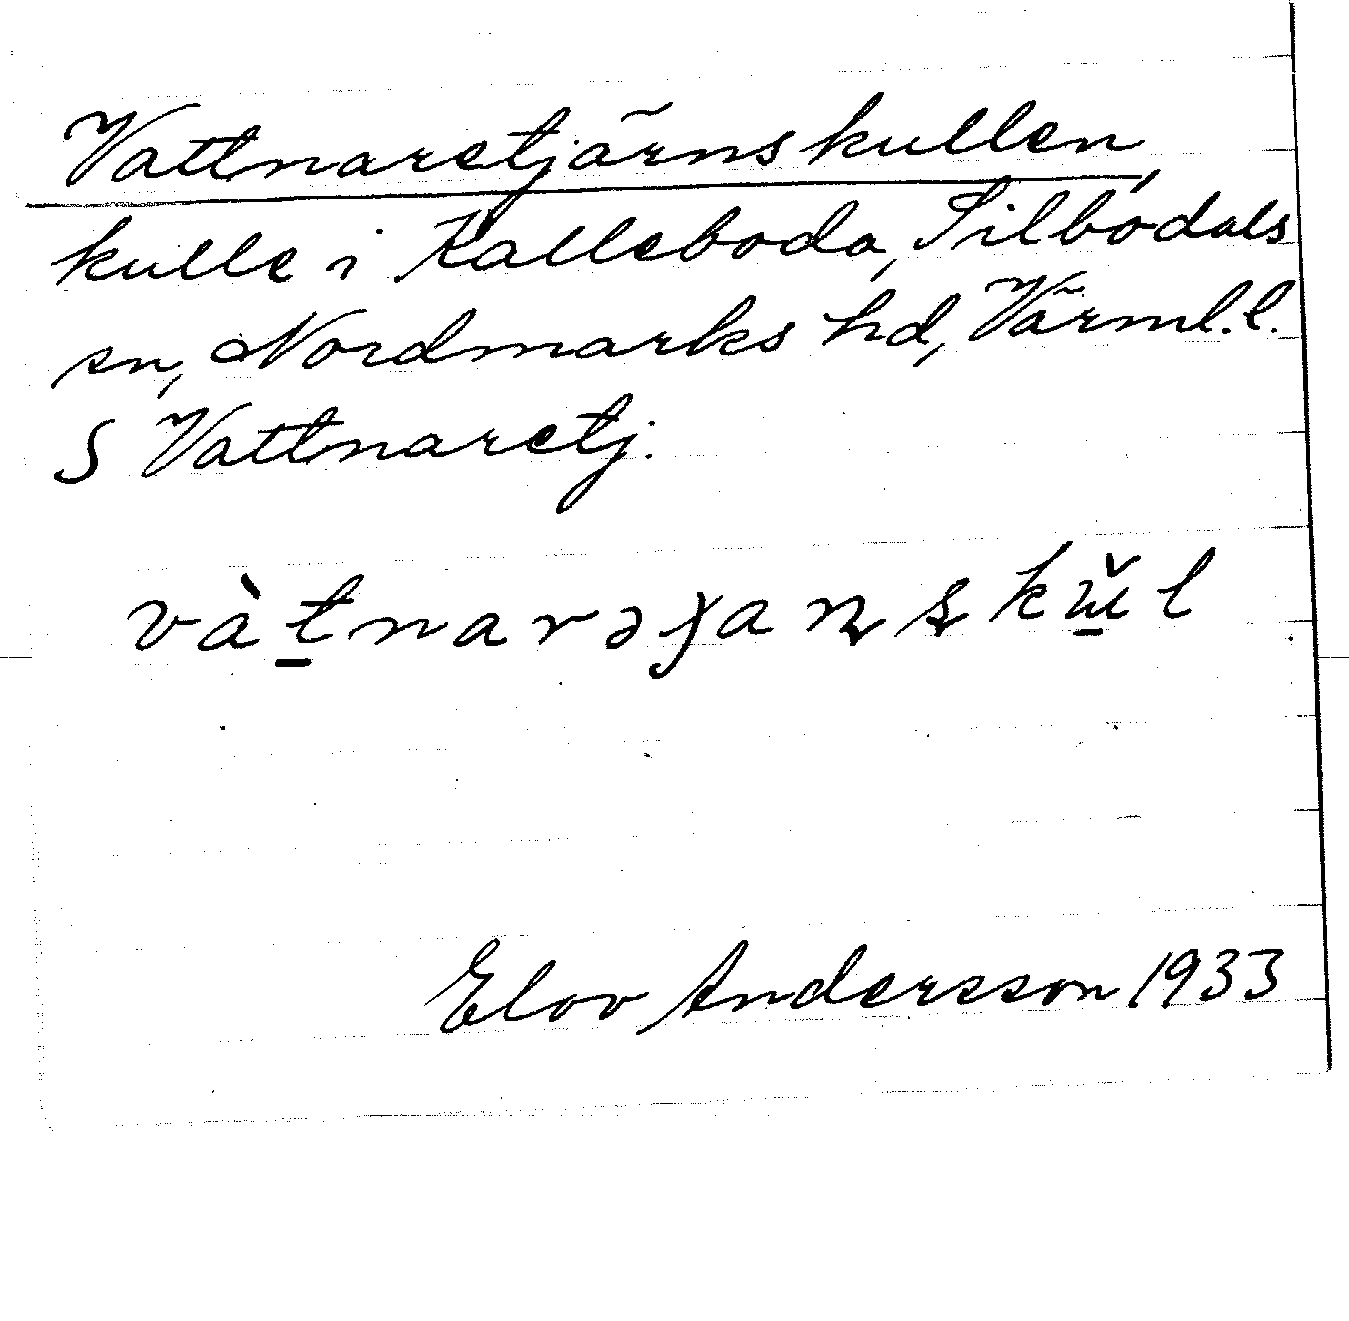 Vattnaretjärnskullen,
kulle i Kalleboda, Silbodals
sn, Nordmarks hd, Värml.l.
S Vattnaretj.
vàt̠narəɟaɳʂkɯ̠̌l
Elov Andersson 1933